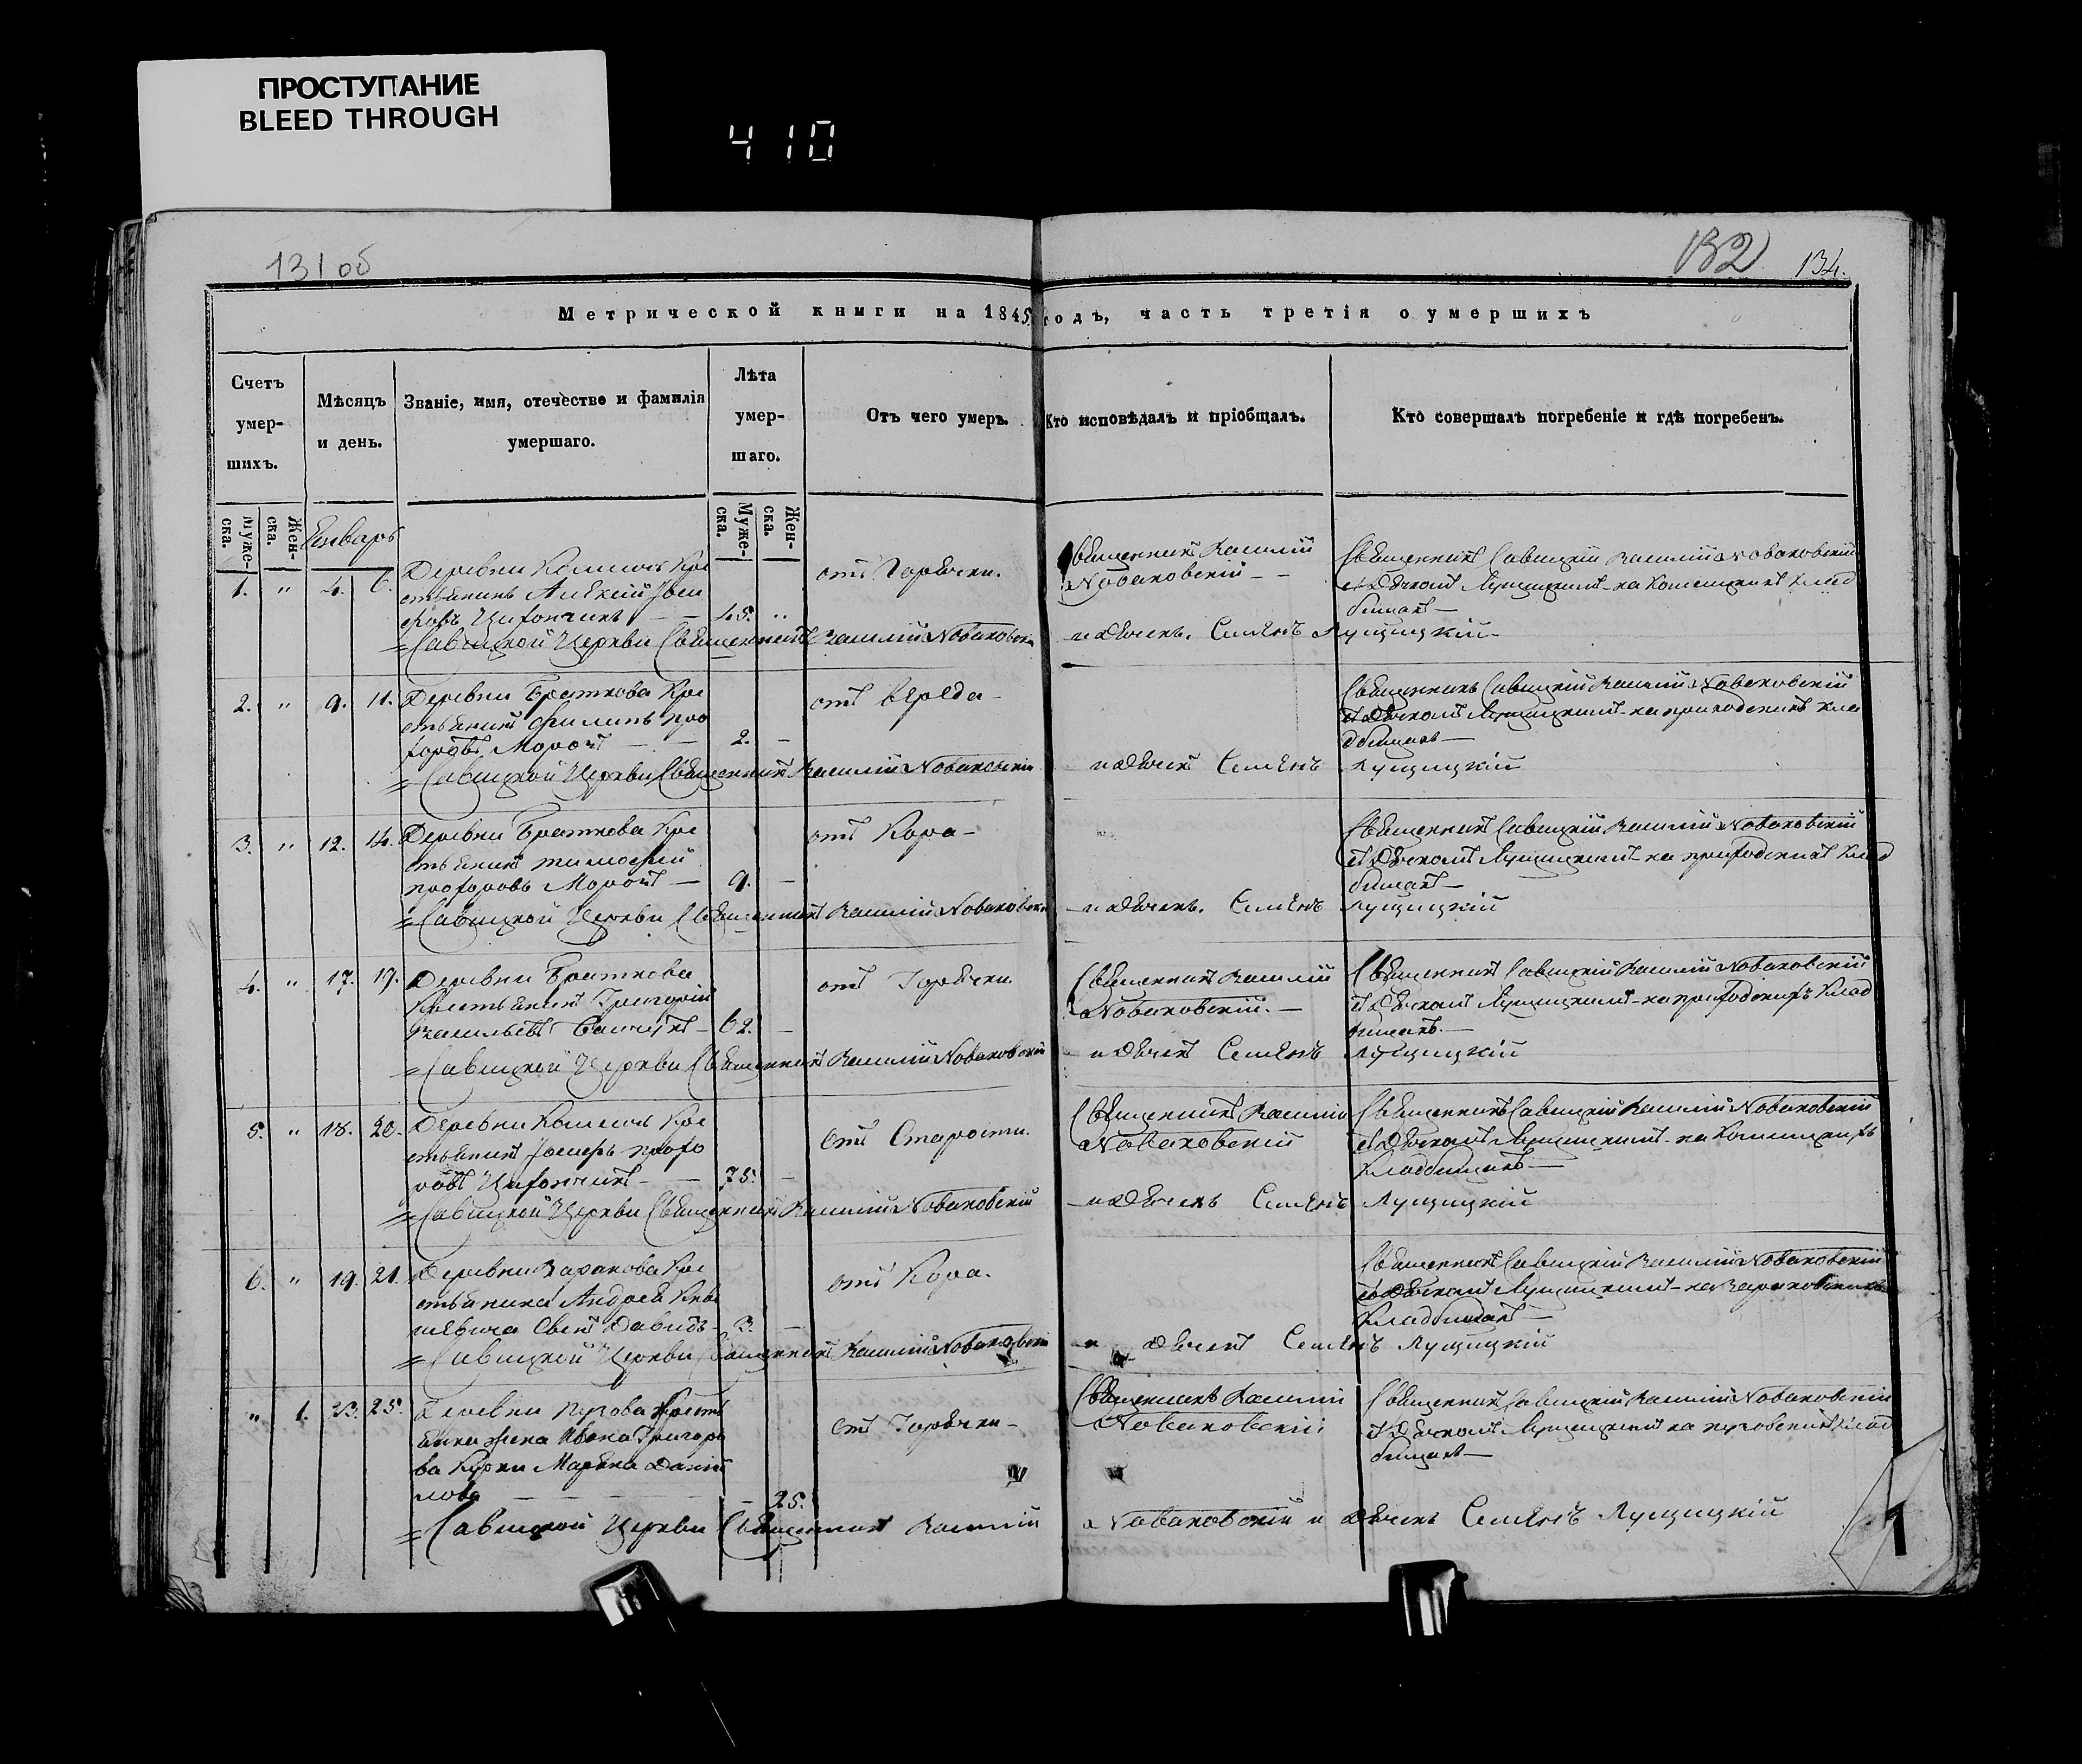 ПРОСТУПАНИЕ
BLEED THROUGH
410
131 об
132 134.
Метрической книги на 1845 годъ, часть третія о умершихъ
Счетъ умер-шихъ.
Мѣсяцъ и день.
Званіе, имя, отечество и фамилія умершаго.
Лѣта умер-шаго.
Отъ чего умеръ.
Кто исповѣдалъ и пріобщалъ.
Кто совершалъ погребеніе и гдѣ погребенъ.
Муже-ска.
Жен-ска.
Муже-ска.
Жен-ска.
Январь
1. " 4. 6. Деревни Кре
стьянинъ Алексій
45. "
отъ Горячки.
Священникъ Василій
Новаковскій
Священникъ Савицкій Василій Новаковскій
съ Дьячкомъ Лущицкимъ на клад
бищахъ
Савицкой Церкви Священникъ Василій Новаковскій и дьячекъ Семенъ Лущицкій
2. " 9. 11. Деревни Браткова Кре
стьянинъ Филипъ Про
хоровъ Морозъ 2. –
отъ вереда
Священникъ Савицкій Василій Новаковскій
съ Дьячкомъ Лущицкимъ на приходскихъ кла
дбищахъ
Савицкой Церкви Священникъ Василій Новаковскій и дьячекъ Семенъ Лущицкій
3. " 12. 14. Деревни Браткова Кре
стьянинъ Тимофей
Прохоровъ Морозъ 9. –
отъ Кора
Священникъ Савицкій Василій Новаковскій
съ Дьячкомъ Лущицкимъ на приходскихъ Клад
бищахъ
Савицкой Церкви Священникъ Василій Новаковскій и дьячекъ Семенъ Лущицкій
4. " 17. 19. Деревни Браткова
Крестьянинъ Григорій
Васильевъ 62. –
отъ Горячки
Священникъ Василій
Новаковскій.
Священникъ Савицкій Василій Новаковскій
съ Дьячкомъ Лущицкимъ на приходскихъ Клад
бищахъ
Савицкой Церкви Священникъ Василій Новаковскій и дьячекъ Семенъ Лущицкій
5. " 18. 20. Деревни Кре
стьянинъ Іосифъ Прохо
ровъ 75. –
отъ Старости.
Священникъ Василій
Новаковскій
Священникъ Савицкій Василій Новаковскій
съ Дьячкомъ Лущицкимъ на
Кладбищахъ
Савицкой Церкви Священникъ Василій Новаковскій и дьячекъ Семенъ Лущицкій
6. " 19. 21. Деревни Кре
стьянина Андрея
Сынъ Давидъ 3. –
отъ Кора.
Священникъ Савицкій Василій Новаковскій
съ Дьячкомъ Лущицкимъ на
Кладбищахъ
Савицкой Церкви Священникъ Василій Новаковскій и дьячекъ Семенъ Лущицкій
" 1. 23. 25. Деревни Кресть
янка жена Ивана Григорь
ва Марьяна Дани
лова 25.
отъ Горячки
Священникъ Василій
Новаковскій
Священникъ Савицкій Василій Новаковскій
съ Дьячкомъ Лущицкимъ на клад
бищахъ
Савицкой Церкви Священникъ Василій Новаковскій и дьячекъ Семенъ Лущицкій